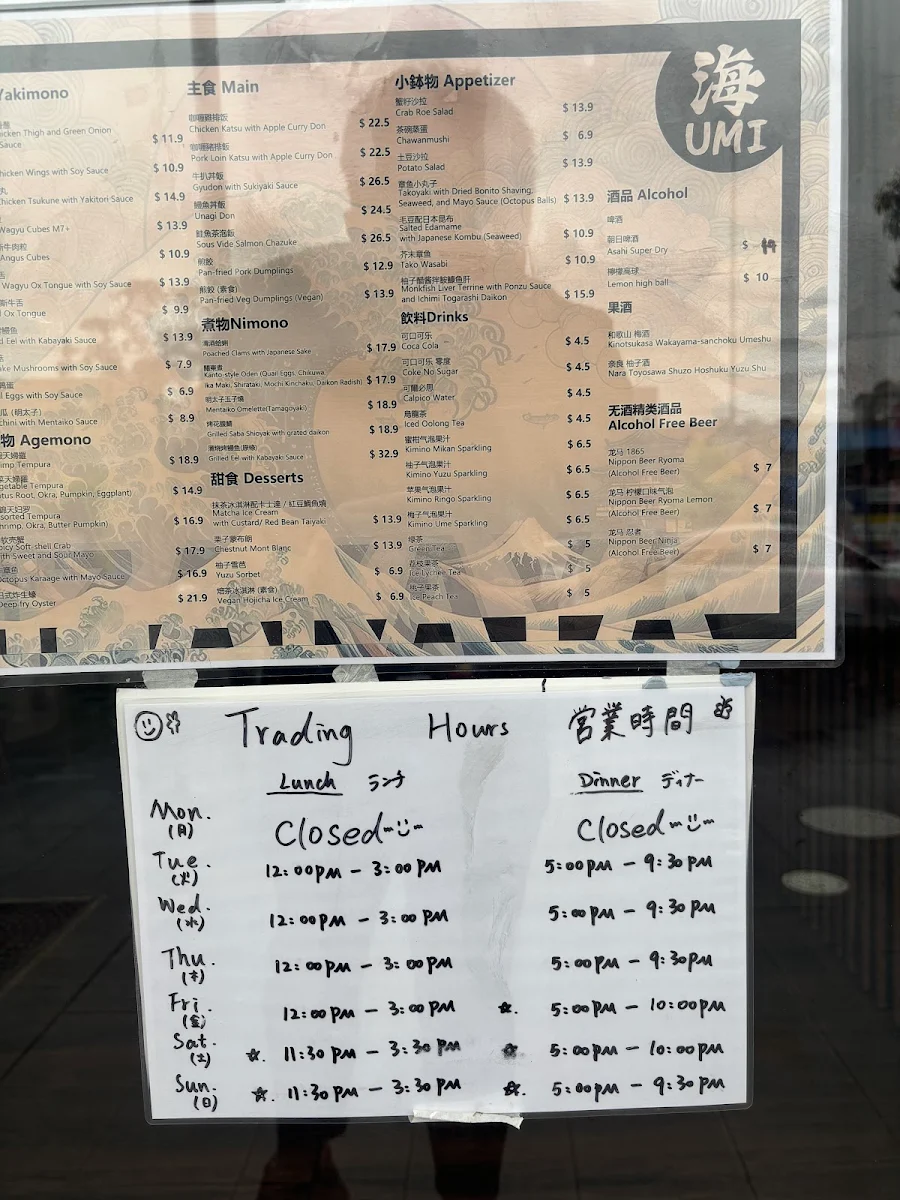 海
UMI
Yakimono
icken Thigh and Green Onion
Sauce $ 11.9
hicken Wings with Soy Sauce $ 10.9
丸
hicken Tsukune with Yakitori Sauce $ 14.9
Wagyu Cubes M7+ $ 13.9
斯牛肉粒
Angus Cubes $ 10.9
舌
Wagyu Ox Tongue with Soy Sauce $ 13.9
斯牛舌
l Ox Tongue $ 9.9
鰻魚
d Eel with Kabayaki Sauce $ 13.9
ke Mushrooms with Soy Sauce $ 7.9
l Eggs with Soy Sauce $ 6.9
瓜 (明太子)
chini with Mentaiko Sauce $ 8.9
物 Agemono
天婦羅
imp Tempura $ 18.9
菜天婦羅
getable Tempura
otus Root, Okra, Pumpkin, Eggplant) $ 14.9
锦天妇罗
sorted Tempura
hrimp, Okra, Butter Pumpkin) $ 16.9
软壳蟹
icy Soft-shell Crab
ith Sweet and Sour Mayo $ 17.9
章魚
Octopus Karaage with Mayo Sauce $ 16.9
日式炸生蠔
Deep fry Oyster $ 21.9
主食 Main
咖喱雞排飯
Chicken Katsu with Apple Curry Don $ 22.5
咖喱豬排飯
Pork Loin Katsu with Apple Curry Don $ 22.5
牛扒丼飯
Gyudon with Sukiyaki Sauce $ 26.5
鰻魚丼飯
Unagi Don $ 24.5
鮭魚茶泡飯
Sous Vide Salmon Chazuke $ 26.5
煎餃
Pan-fried Pork Dumplings $ 12.9
煎餃 (素食)
Pan-fried Veg Dumplings (Vegan) $ 13.9
煮物Nimono
清酒蛤蜊
Poached Clams with Japanese Sake $ 17.9
關東煮
Kanto-style Oden (Quail Eggs, Chikuwa,
Ika Maki, Shirataki, Mochi Kinchaku, Daikon Radish) $ 17.9
明太子玉子燒
Mentaiko Omelette(Tamagoyaki) $ 18.9
Grilled Saba Shioyak with grated daikon $ 18.9
Grilled Eel with Kabayaki Sauce $ 32.9
甜食 Desserts
抹茶冰淇淋配卡士達 / 紅豆鯛魚燒
Matcha Ice Cream
with Custard/ Red Bean Taiyaki $ 13.9
栗子蒙布朗
Chestnut Mont Blanc $ 13.9
柚子雪芭
Yuzu Sorbet $ 6.9
焙茶冰淇淋 (素食)
Vegan Hojicha Ice Cream $ 6.9
小鉢物 Appetizer
蟹籽沙拉
Crab Roe Salad $ 13.9
茶碗蒸蛋
Chawanmushi $ 6.9
土豆沙拉
Potato Salad $ 13.9
章魚小丸子
Takoyaki with Dried Bonito Shaving,
Seaweed, and Mayo Sauce (Octopus Balls) $ 13.9
毛豆配日本昆布
Salted Edamame
with Japanese Kombu (Seaweed) $ 10.9
芥末章魚
Tako Wasabi $ 10.9
柚子醋醬拌鮟鱇魚肝
Monkfish Liver Terrine with Ponzu Sauce
and Ichimi Togarashi Daikon $ 15.9
飲料Drinks
可口可乐
Coca Cola $ 4.5
可口可乐 零度
Coke No Sugar $ 4.5
可爾必思
Calpico Water $ 4.5
烏龍茶
Iced Oolong Tea
蜜柑气泡果汁
Kimino Mikan Sparkling $ 6.5
柚子气泡果汁
Kimino Yuzu Sparkling $ 6.5
苹果气泡果汁
Kimino Ringo Sparkling $ 6.5
梅子气泡果汁
Kimino Ume Sparkling $ 6.5
绿茶
Green Tea $ 5
荔枝果茶
Ice Lychee Tea $ 5
桃子果茶
Ice Peach Tea $ 5
酒品 Alcohol
啤酒
朝日啤酒
Asahi Super Dry $
檸檬高球
Lemon high ball $ 10
果酒
和歌山 梅酒
Kinotsukasa Wakayama-sanchoku Umeshu
奈良 柚子酒
Nara Toyosawa Shuzo Hoshuku Yuzu Shu
无酒精类酒品
Alcohol Free Beer
龙马 1865
Nippon Beer Ryoma
(Alcohol Free Beer) $ 7
龙马 柠檬口味气泡
Nippon Beer Ryoma Lemon
(Alcohol Free Beer) $ 7
龙马 忍者
Nippon Beer Ninja
(Alcohol Free Beer) $ 7
Trading Hours 営業時間
Lunch ランチ Dinner ディナー
Mon. (月) Closed Closed
Tue. (火) 12:00PM - 3:00 PM 5:00PM - 9:30 PM
Wed. (水) 12:00PM - 3:00 PM 5:00PM - 9:30 PM
Thu. (木) 12:00PM - 3:00 PM 5:00PM - 9:30PM
Fri. (金) 12:00PM - 3:00 PM ☆. 5:00PM - 10:00PM
Sat. (土) ☆. 11:30 PM - 3:30 PM ☆. 5:00PM - 10:00 PM
Sun. (日) ☆. 11:30 PM - 3:30 PM ☆. 5:00PM - 9:30 PM